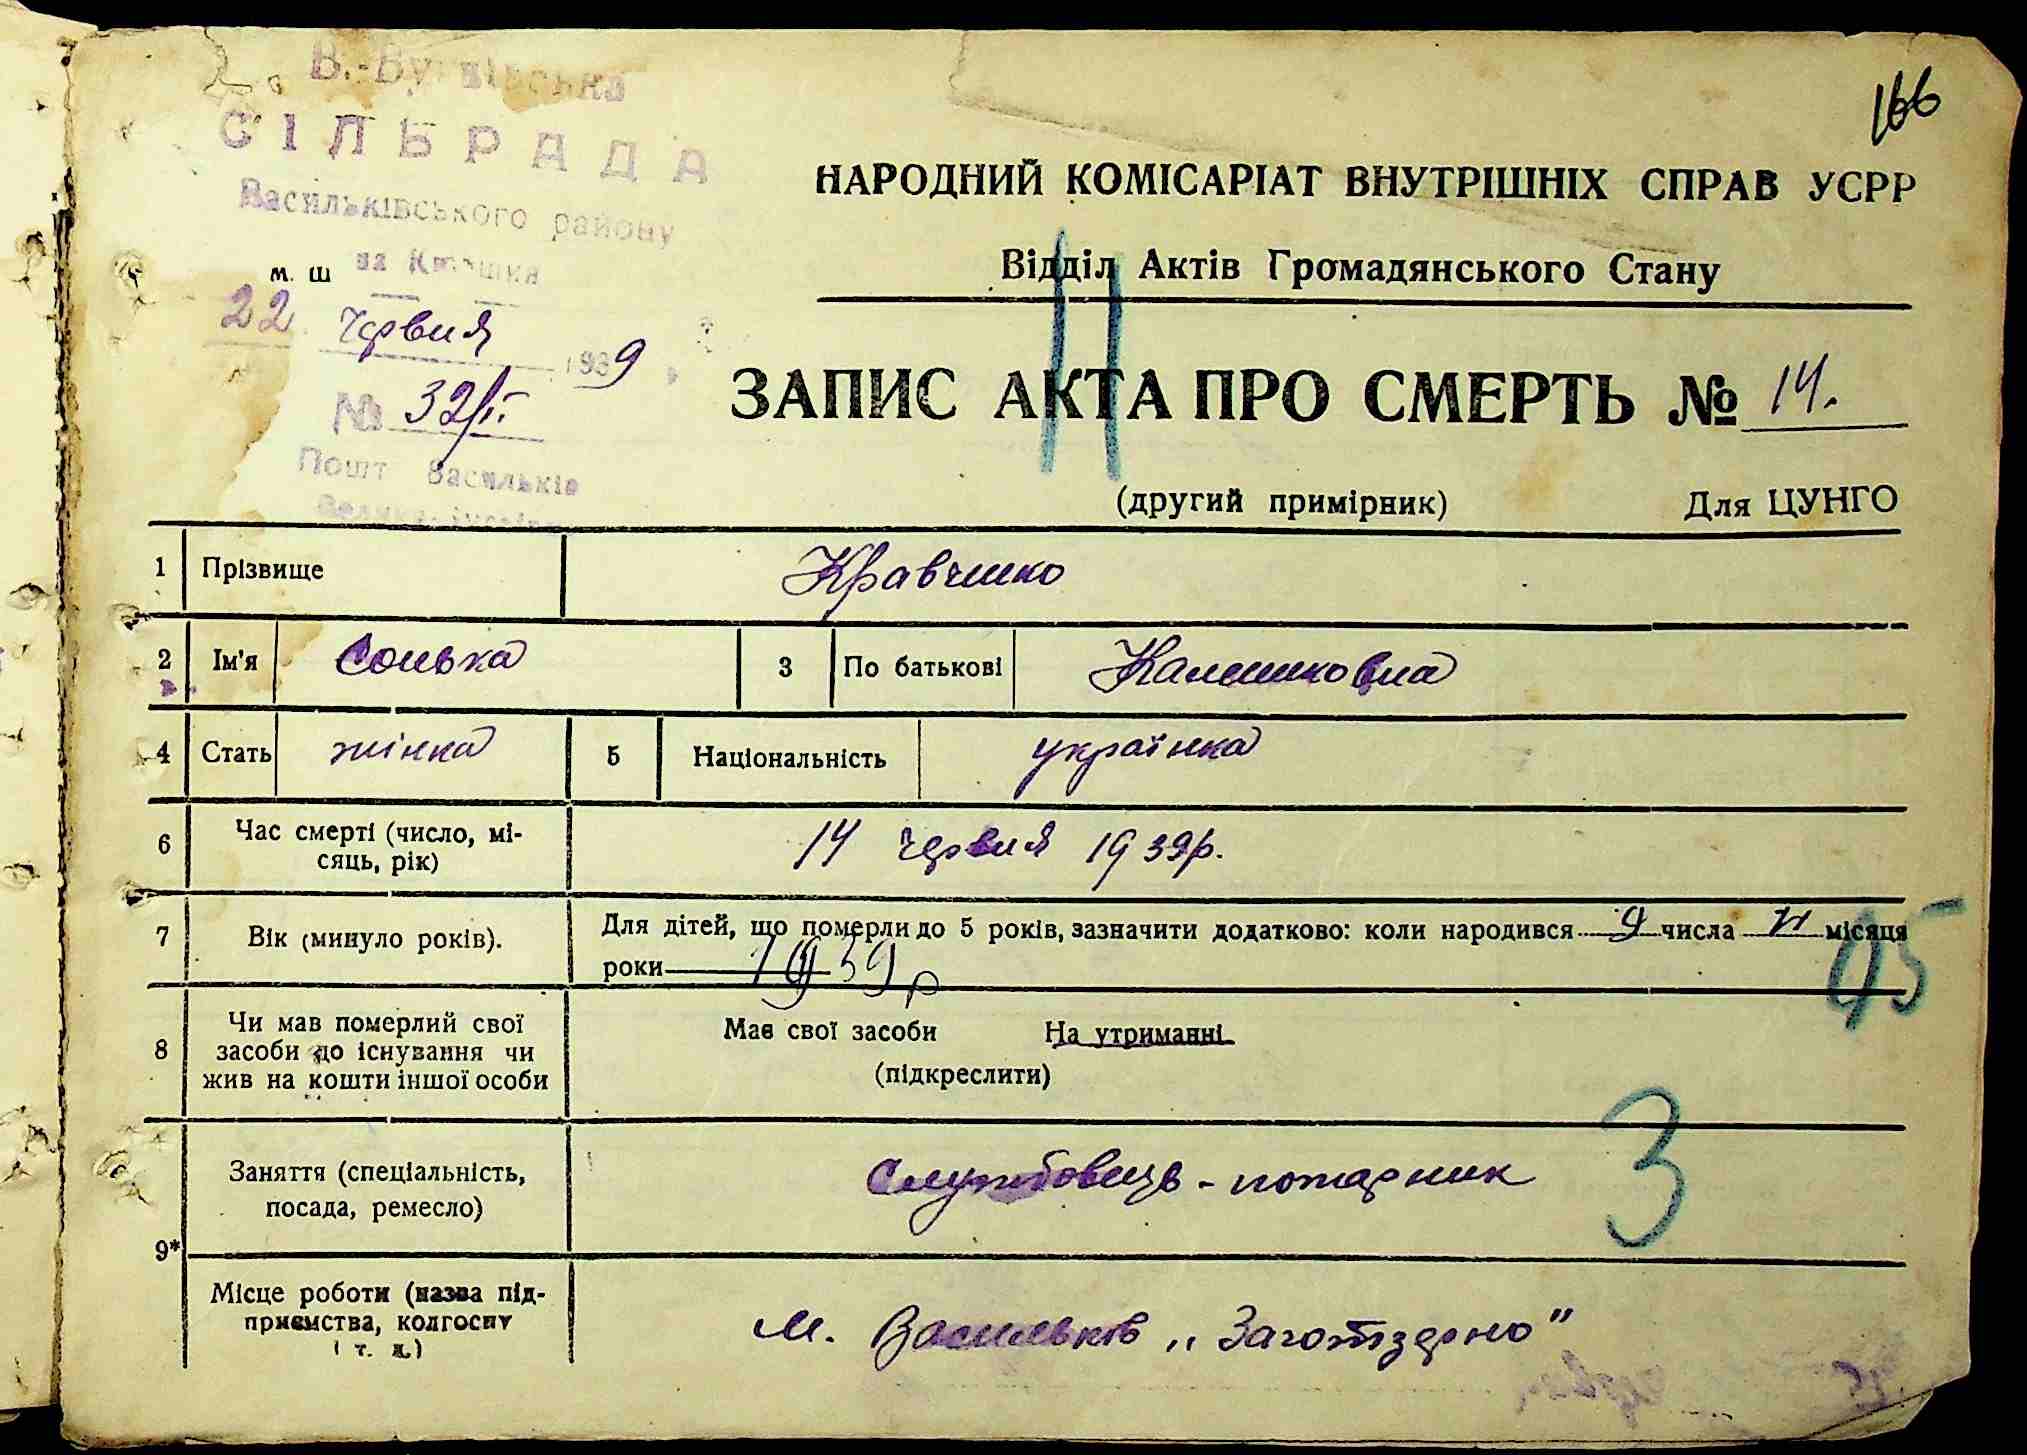 166
СІЛЬРАДА
Васильківського району
на Київщині
м. ш
22 червня 1939
№ 32/
Пошт Васильків
НАРОДНИЙ КОМІСАРІАТ ВНУТРІШНІХ СПРАВ УСРР
Відділ Актів Громадянського Стану
ЗАПИС АКТА ПРО СМЕРТЬ № 14.
(другий примірник) Для ЦУНГО
1 Прізвище Кравченко
2 Ім'я Сонька 3 По батькові
4 Стать жінка 5 Національність українка
6 Час смерті (число, мі-
сяць, рік) 14 червня 1939р.
7 Вік (минуло років). Для дітей, що померли до 5 років, зазначити додатково: коли народився 9 числа місяця
роки 1939р
95
8 Чи мав померлий свої
засоби до існування чи
жив на кошти іншої особи
Має свої засоби На утриманні
(підкреслити)
Заняття (спеціальність,
посада, ремесло) Службовець - пожарник
3
9*
Місце роботи (назва під-
приємства, колгоспу
і т. д.) м. Васильків „Заготзерно"